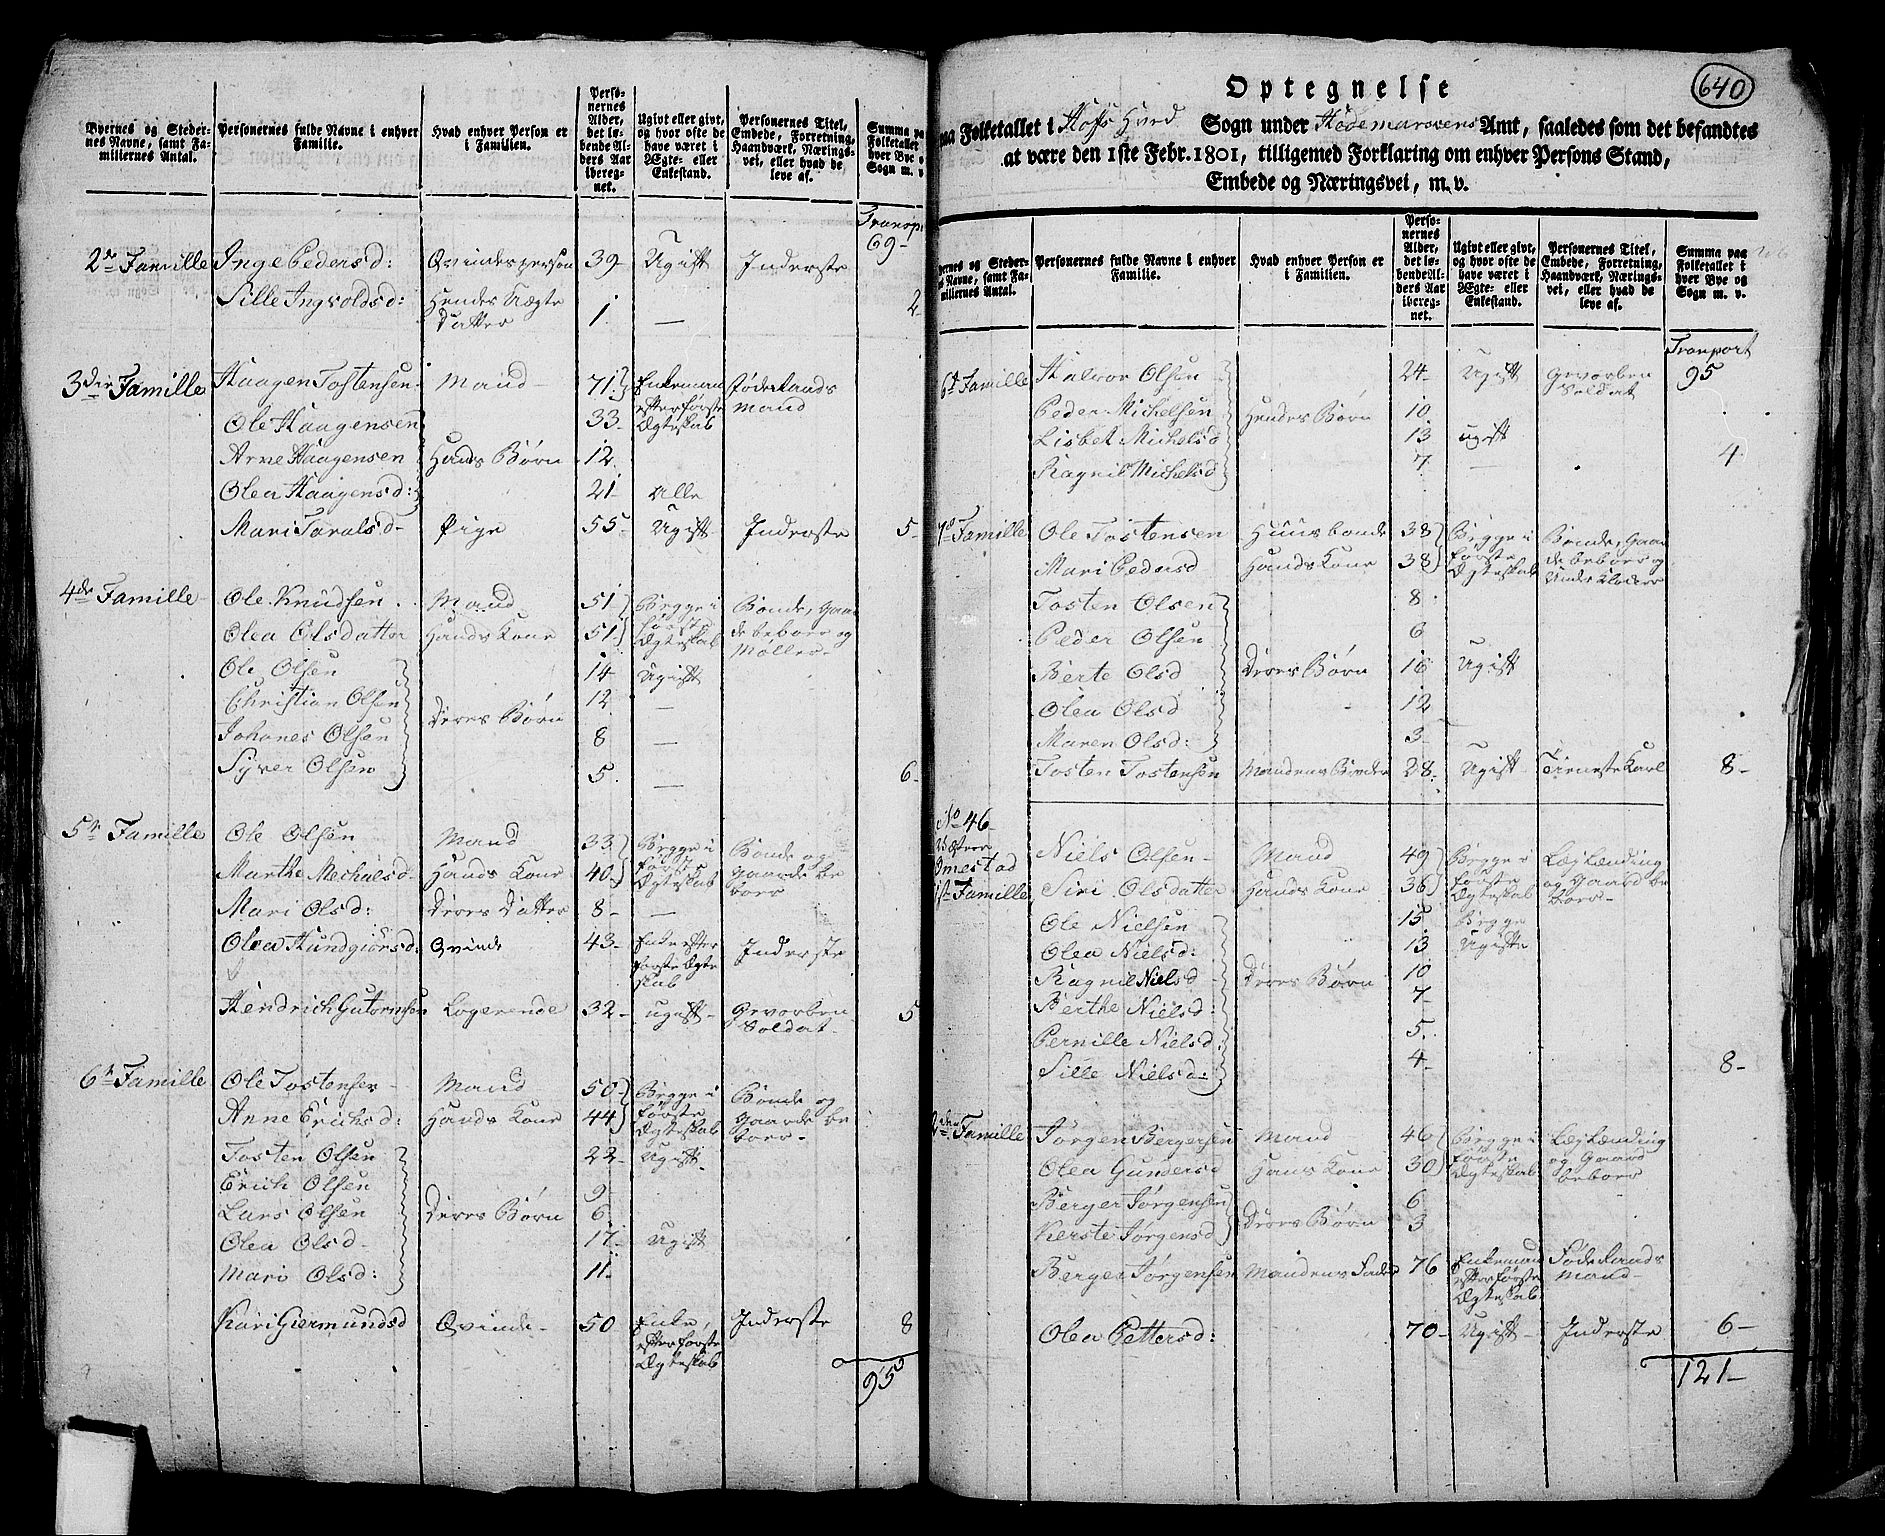 Byernes og Steder-
nes Navne, samt Fa-
miliernes Antal.
Personernes fulde Navne i enhver
Familie.
Hvad enhver Person er
i Familien.
Perso-
nernes
Alder,
det lø-
bende Al-
ders Aar
ibereg-
net.
Ugivt eller givt,
og hvor ofte de
have været i
Ægte- eller
Enkestand.
Personernes Titel,
Embede, Forretning,
Haandværk, Nærings-
vei, eller hvad de
leve af.
Summa paa
Folketallet
hver Bye o
Sogn m. v
Transp
69-
2de Famille Inge Pedersd: Qvindesperson 39- Ugift Inderste
Sille Ingvoldsd: Hendes Uægte
Datter 1. — 2-
3die Famille Haagen Tostensen Mand 71. Enkemand
efter første
Ægteskab Føderaads
Mand
Ole Haagensen 33.
Arne Haagensen Hands Børn 12.
Olea Haagensd: 21- Alle
Mari Taralsd- Pige 55- Ugift Inderste 5-
4de Famille Ole Knudsen Mand 51- Begge i
første
Ægteskab Bonde, Gaar
de beboer og
Møller-
Olea Olsdatter Hands Kone 51-
Ole Olsen 14 Ugift
Christian Olsen Deres Børn 12 —
Johanes Olsen 8 —
Syver Olsen 5. — 6-
5te Famille Ole Olsen Mand 33. Begge i
første
Ægteskab Bonde og
Gaarde be
boer
Marthe Michelsd- Hands Kone 40-
Mari Olsd: Deres Datter 8- —
Olea Hundgiørsd: Qvinde 43- Enke efter
første Ægte
skab Inderste
Hendrich Gutormsen Logerende 32- ugift- Gevorben
Soldat- 5
6te Famille Ole Tostensen Mand 50- Begge i
første
Ægteskab Bonde og
Gaarde be
boer-
Anne Erichsd: Hands Kone 44
Tosten Olsen 22- Ugift
Erich Olsen 9-
Lars Olsen Deres Børn 6-
Olea Olsd- 17- Ugift
Mari Olsd: 11-
Kari Giermundsd Qvinde- 50 Enke,
efter første
Ægteskab Inderste 8
95
640
Optegnelse
paa Folketallet i Hoffs Hvrd Sogn under Hedemarkens Amt, saaledes som det befandtes
at være den 1ste Febr. 1801, tilligemed Forklaring om enhver Persons Stand,
Embede og Næringsvei, m. v.
yernes og Steder-
s Navne, samt Fa-
miliernes Antal.
Personernes fulde Navne i enhver
Familie.
Hvad enhver Person er
i Familien.
Perso-
nernes
Alder,
det lø-
bende Al-
ders Aar
ibereg-
net.
Ugivt eller givt,
og hvor ofte de
have været i
Ægte- eller
Enkestand.
Personernes Titel,
Embede, Forretning,
Haandværk, Nærings-
vei, eller hvad de
leve af.
Summa paa
Folketallet i
hver Bye og
Sogn m. v.
Tranport
95
6te Famille Halvor Olsen 24- Ugift Gevorben
Soldat
Peder Michelsen Hendes Børn 10
Lisbet Michelsd 13 ugift
Ragnil Michelsd 7. — 4
7de Famille Ole Tostensen Huusbonde 38 Begge i
første
Ægteskab Bonde, Gaar
de beboer og
Mari Pedersd Hands Kone 38
Tosten Olsen 8
Peder Olsen 6
Berte Olsd Deres Børn 16 Ugift
Olea Olsd 12
Maren Olsd: 3-
Tosten Tostensen Mandens Broder 28- Ugift Tieneste Karl 8-
No 46-
Westre
Omestad
1ste Famille Niels Olsen- Mand 49 Begge i
første
Ægteskab Leylænding
og Gaard be
boer-
Siri Olsdatter Hands Kone 36
Ole Nielsen 15 Begge
Olea Nielsd: 13 Ugifte
Ragnil Nielsd Deres Børn 10
Berthe Nielsd: 7-
Pernille Nielsd: 5.
Sille Nielsd: 4- 8-
2den Famille Jørgen Bergersen Mand 46 Begge i
første
Ægteskab Leylænding
og Gaard
beboer
Olea Gundersd Hans Kone 30
Berger Jørgensen Deres Børn 6
Kerste Jørgensd 3
Berger Jørgensen Mandens Fader 76 Enkemand
efter første
Ægteskab Føderaads
Mand-
Olea Pettersd: 70- Ugift- Inderste 6-
121-